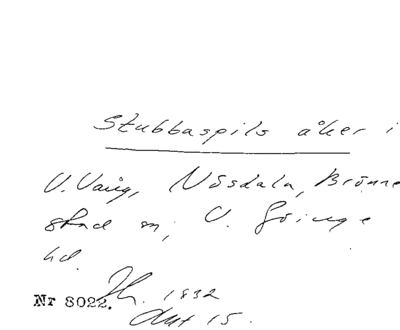 Stubbaspils åker i
V. Vång, Nösdala, Brönne
stad sn, V. Göinge
hd.
Nr 8022. Jh. 1832
Akt 15.